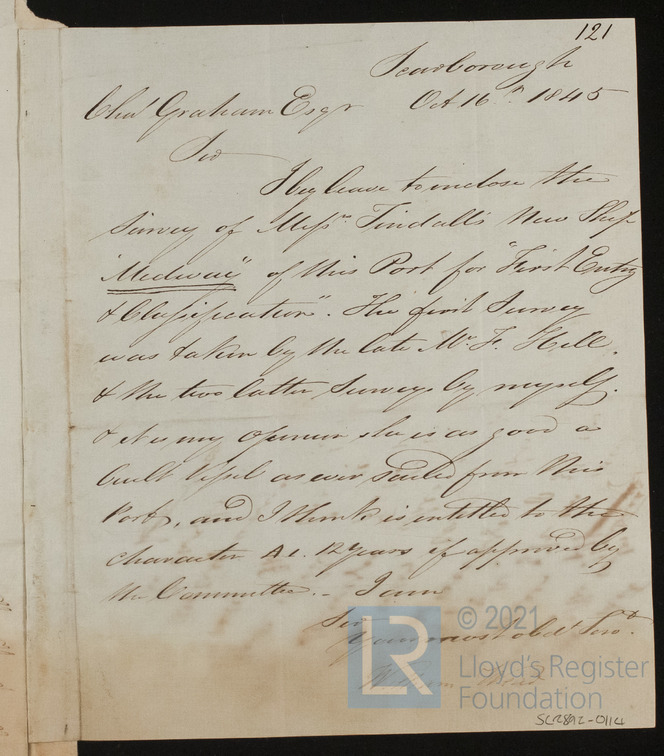 121
Scarborough
Chas Graham Esqr Oct 16th 1845
Sir
I beg leave to inclose the
Survey of Messrs Tindall's New Ship
"Medway" of this Port for "First Entry
& Classification". The first Survey
was taken by the late Mr. F. Hill.
& the two latter Surveys by myself.
& it is my opinion she is as good a
built Vessel as ever sailed from this
Port, and I think is entitled to the
character A1. 12 Years if approved by
the Committee. – I am
Sir
Your most obdt Servt.
© 2021
LR
Lloyd's Register
Foundation
SCR892-0114